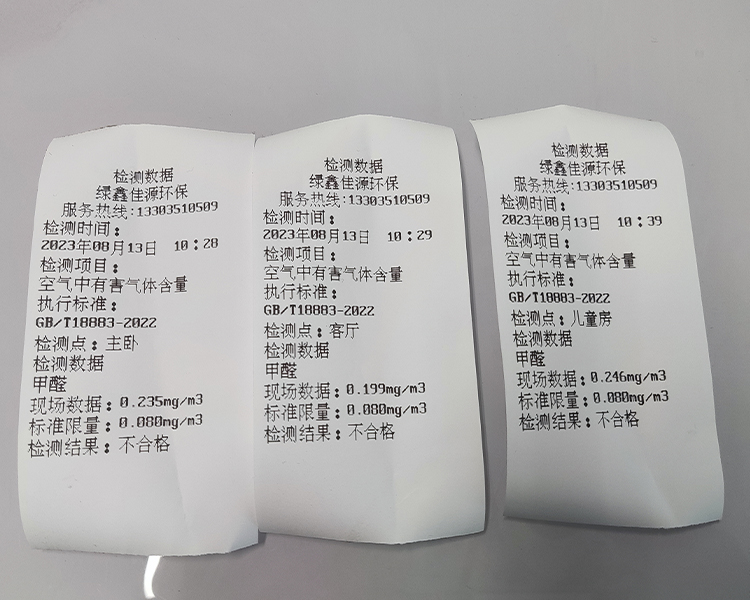 检测数据
绿鑫佳源环保
服务热线:13303510509
检测时间:
2023年08月13日 10:28
检测项目:
空气中有害气体含量
执行标准:
GB/T18883-2022
检测点:主卧
检测数据
甲醛
现场数据:0.235mg/m3
标准限量:0.080mg/m3
检测结果:不合格
检测数据
绿鑫佳源环保
服务热线:13303510509
检测时间:
2023年08月13日 10:29
检测项目:
空气中有害气体含量
执行标准:
GB/T18883-2022
检测点:客厅
检测数据
甲醛
现场数据:0.199mg/m3
标准限量:0.080mg/m3
检测结果:不合格
检测数据
绿鑫佳源环保
服务热线:13303510509
检测时间:
2023年08月13日 10:39
检测项目:
空气中有害气体含量
执行标准:
GB/T18883-2022
检测点:儿童房
检测数据
甲醛
现场数据:0.246mg/m3
标准限量:0.080mg/m3
检测结果:不合格